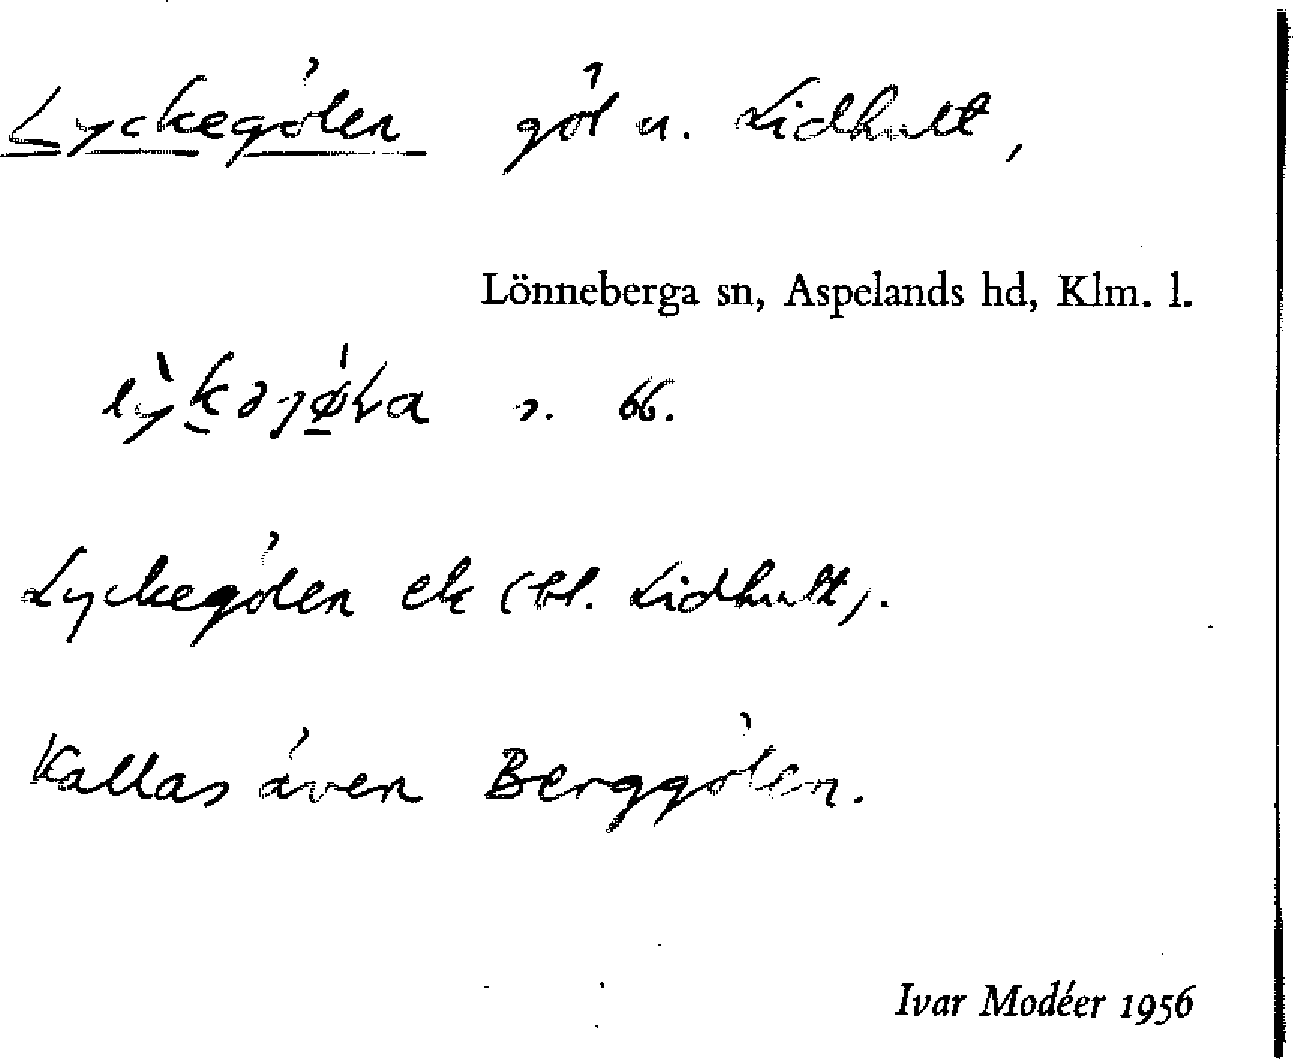 Lyckegölen göl u. Lidhult,
Lönneberga sn, Aspelands hd, Klm. l.
lỳkəjǿLa s. 66.
Lyckegölen ek (bl. Lidhult).
Kallas även Berggölen.
Ivar Modéer 1956